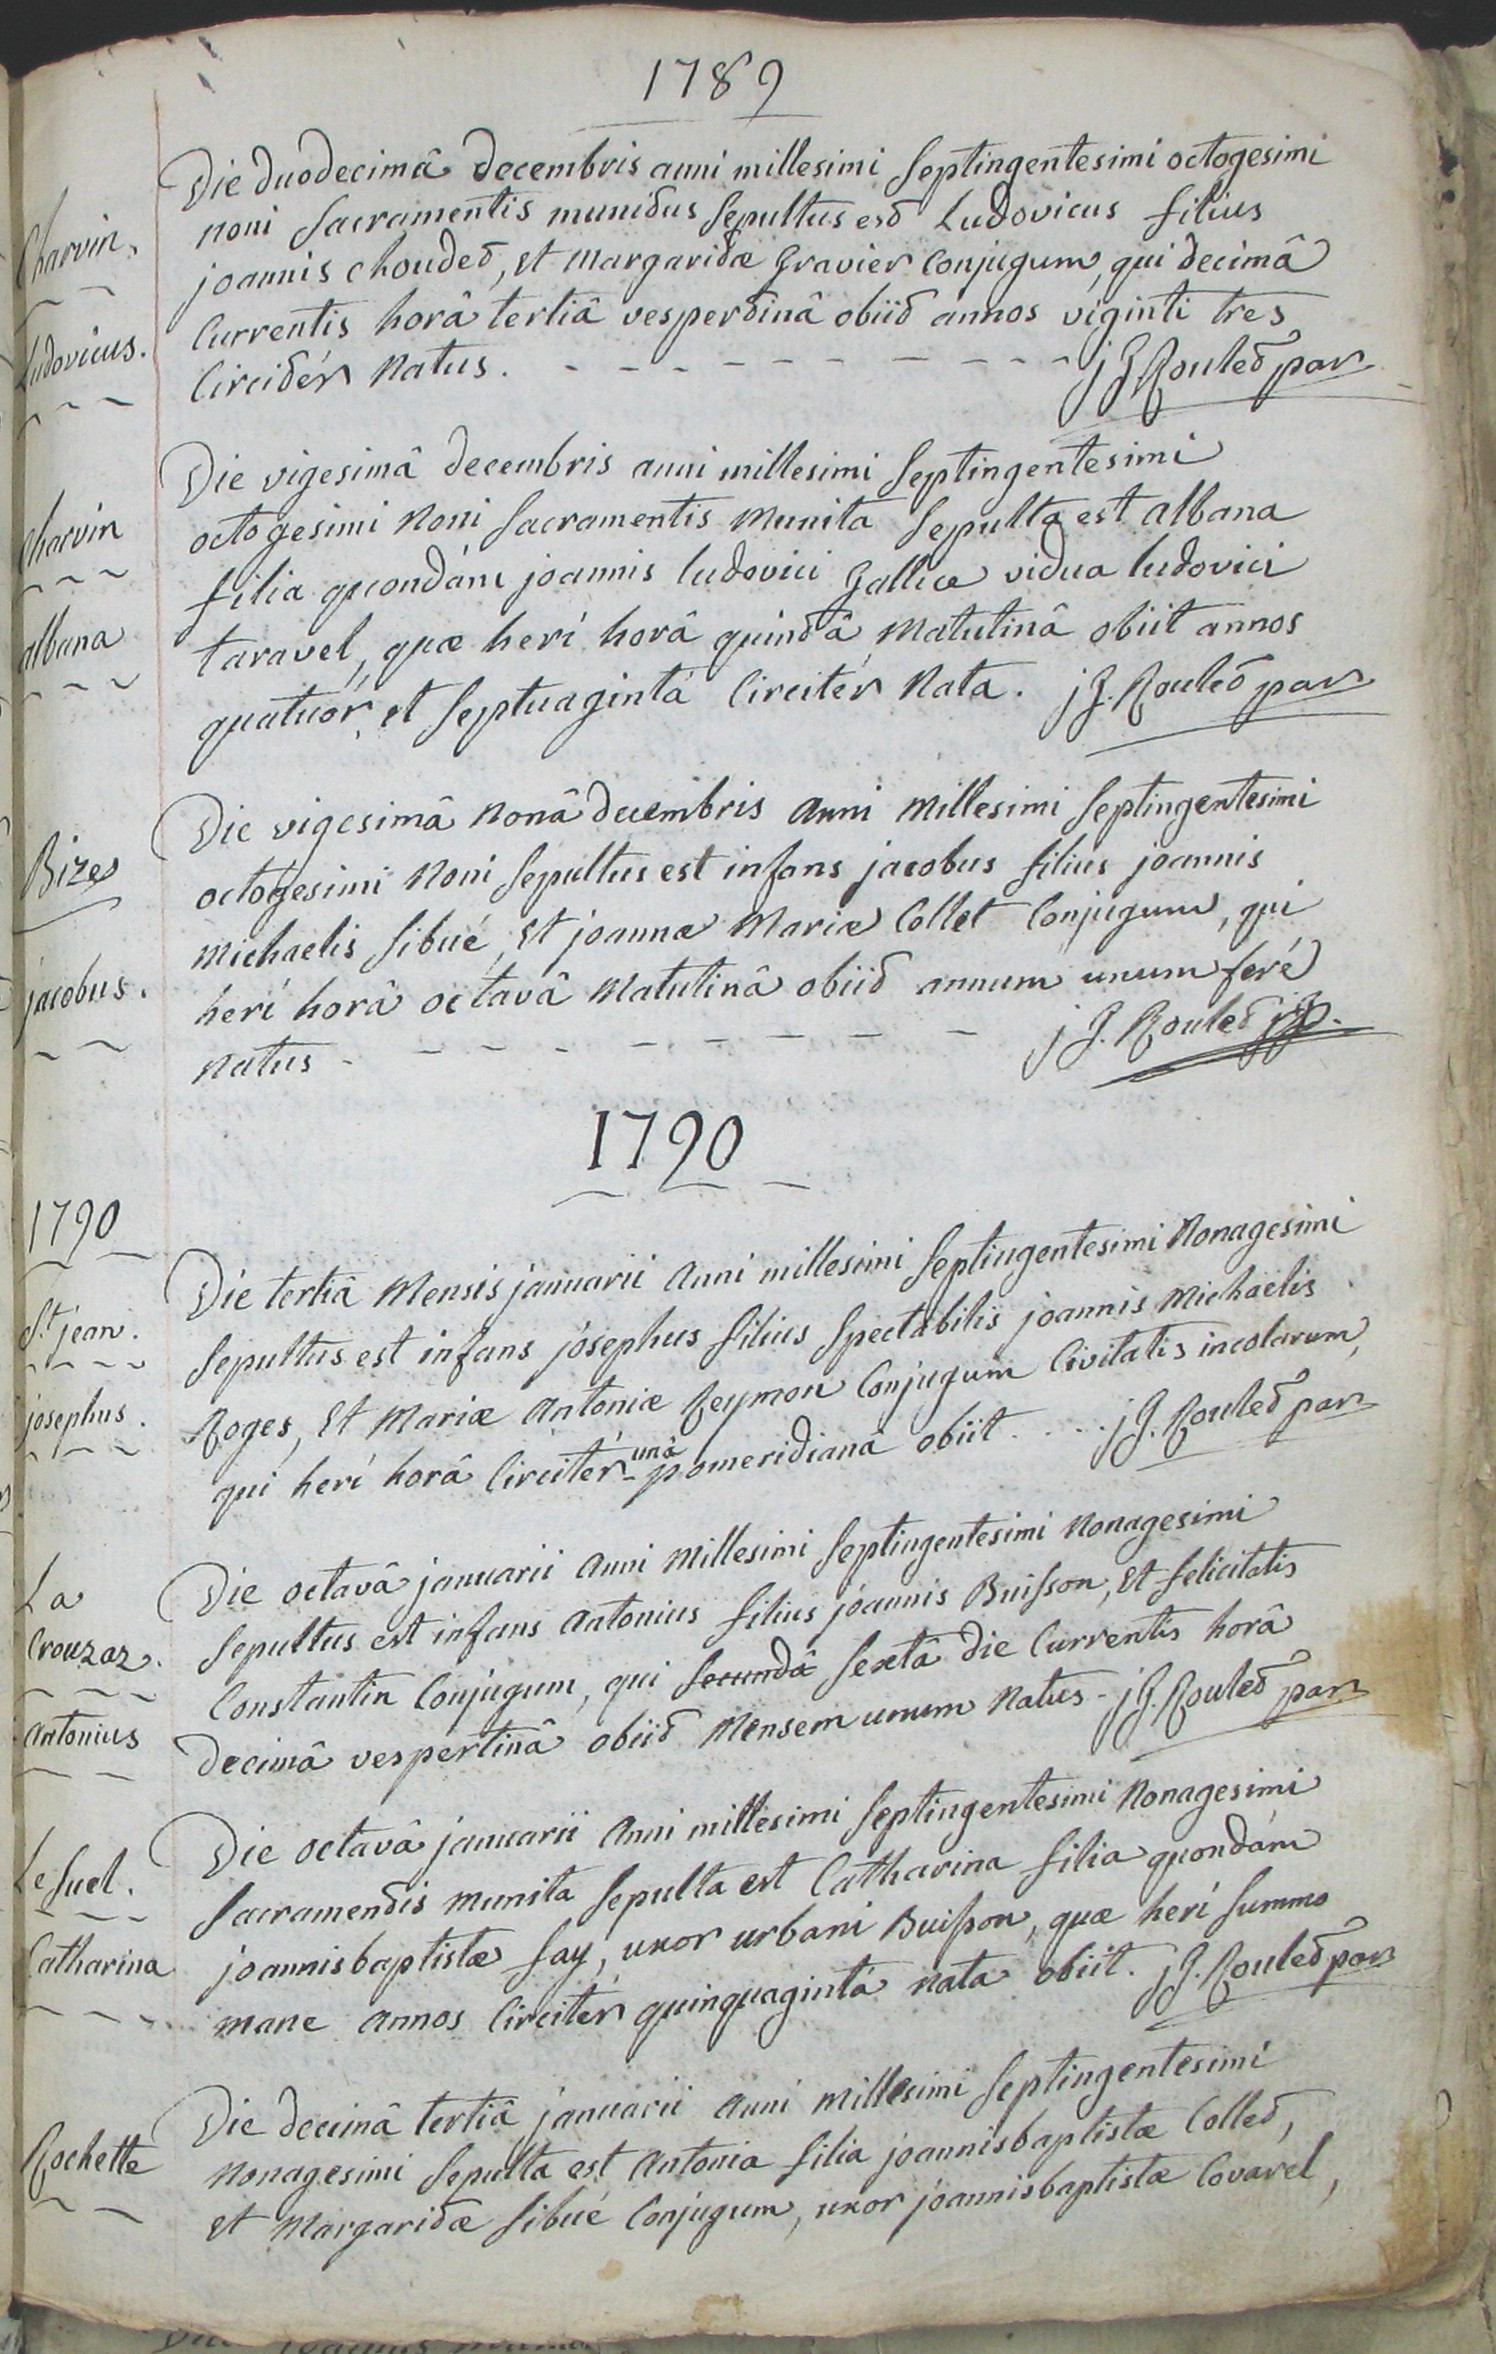 1789
Charvin.
Ludovicus.
Die duodecimâ decembris anni millesimi septingentesimi octogesimi
noni sacramentis munitus sepultus est Ludovicus filius
joannis choudet, et margaritæ gravier conjugum, qui decimâ
currentis horâ tertiâ vespertinâ obiit annos viginti tres
circitér natus. - - - - - - - - - - j J Roulet par
Charvin
albana
Die vigesimâ decembris anni millesimi septingentesimi
octogesimi noni sacramentis munita sepulta est albana
filia quondám joannis ludovici gallice vidua ludovici
taravel, quæ herí horâ quintâ matutinâ obiit annos
quatuór et septuagintá circitér nata. j J. Roulet par
Bize
jacobus.
Die vigesimâ nonâ decembris anni millesimi septingentesimi
octogesimi noni sepultus est infans jacobus filius joannis
michaelis sibué, et joannæ mariæ Collet conjugum, qui
herí horâ octavâ matutinâ obiit annum unum feré
natus - - - - - - - - - - j J. Roulet
1790
1790
St jean.
josephus.
Die tertiâ mensis januarii anni millesimi septingentesimi nonagesimi
sepultus est infans josephus filius spectabilis joannis michaelis
Roges, et mariæ antoniæ Reymon conjugum civitatis incolarum,
qui herí horâ circitér unâ pomeridianâ obiit. . . . . j J. Roulet par
La
Crouzaz.
antonius
Die octavâ januarii anni millesimi septingentesimi nonagesimi
sepultus est infans antonius filius joannis Buisson, et felicitatis
constantin conjugum, qui secundâ sextâ die currentis horâ
decimâ vespertinâ obiit mensem unum natus - j J. Roulet par
Le suel.
Catharina
Die octavâ januarii anni millesimi septingentesimi nonagesimi
sacramentis munita sepulta est Catharina filia quondám
joannisbaptistæ say, uxor urbani Buisson, quæ herí summo
mane annos circitér quinquagintá nata obiit. j J. Roulet par
Rochette
Die decimâ tertiâ januarii anni millesimi septingentesimi
nonagesimi sepulta est antonia filia joannisbaptistæ Collet,
et margaritæ sibué conjugum, uxor joannisbaptistæ Covarel,